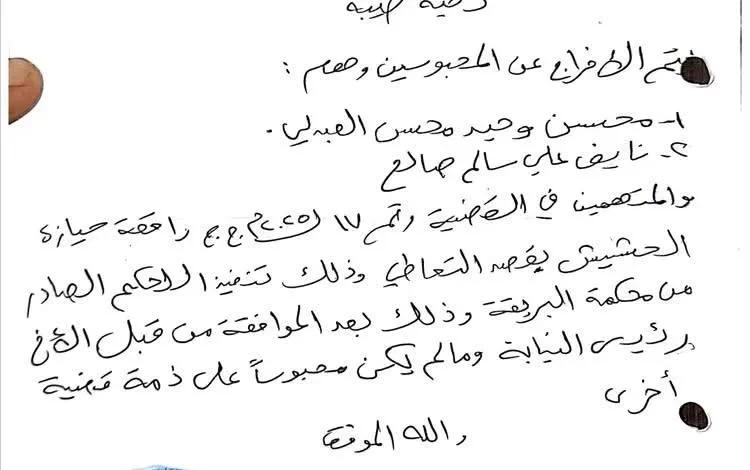 تحية طيبة
يتم الإفراج عن المحبوسين وهم :
١- محسن وحيد محسن العبدلي .
٢- نايف علي سالم صالح
والمتهمين في القضية رقم ١٧ لـ ٢٠٢٥م ج ج واقعة حيازة
الحشيش بقصد التعاطي وذلك تنفيذ الحكم الصادر
من محكمة البريقة وذلك بعد الموافقة من قبل الأخ
رئيس النيابة ومالم يكن محبوساً على ذمة قضية
أخرى
والله الموفق